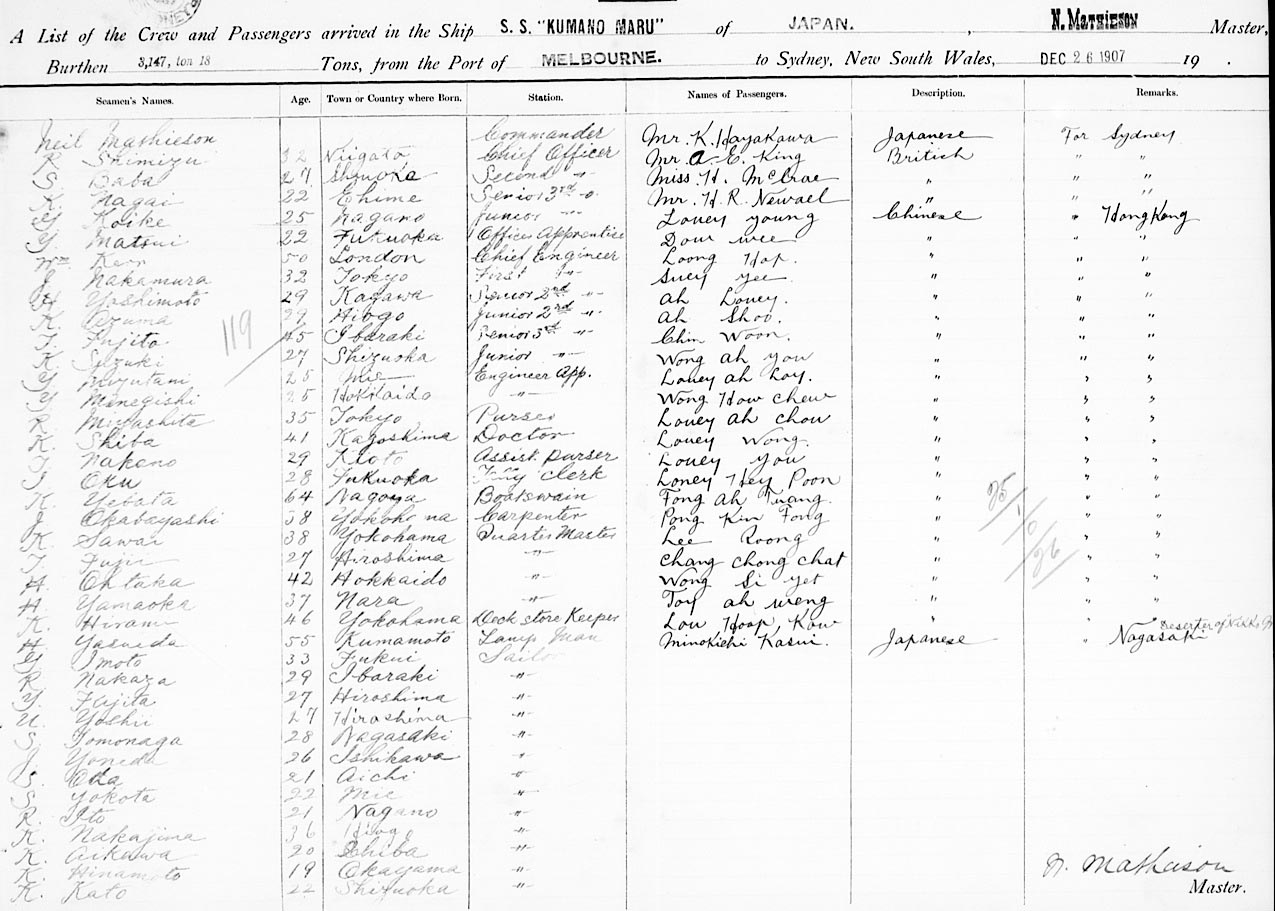 A List of the Crew and Passengers arrived in the Ship S. S. "KUMANO MARU" of JAPAN. , N. MATHIESON Master,
Burthen 3,147, ton 18 Tons, from the Port of MELBOURNE. to Sydney, New South Wales, DEC 26 1907 19 .
Seamen's Names. Age. Town or Country where Born. Station. Names of Passengers. Description. Remarks.
Neil Mathieson Commander Mr. K. Hayakawa Japanese For Sydney
R Shimizu 32 Niigata Chief Officer Mr. A. E. King British " "
S. Baba 27 Shizuoka Second " Miss. H. McCrae " " "
K. Nagai 22 Ehime Senior 3rd " Mr. H. R. Newael " " "
Y. Koike 25 Nagano Junior " Louey young Chinese " Hong Kong
Y. Matsui 22 Fukuoka Offices Apprentise Dour wee " " "
Wm Kerr 50 London Chief Engineer Loong Hop. " " "
J. Nakamura 32 Tokyo First " Suey yee " " "
H. Yoshimoto 29 Kagawa Senior 2nd " Ah Louey. " " "
K. Ozuma 29 Hiogo Junior 2nd " Ah Shoo. " " "
T. Fujita 45 Ibaraki Senior 3rd " Chin Woon. " " "
K. Suzuki 27 Shizuoka Junior " Wong ah you " " "
Y. Mizutani 25 Mie Engineer App. Louey ah Loy. " " "
Y. Menegishi 25 Hokkaido " Wong How chew " " "
R. Miyashita 35 Tokyo Purser Louey ah chou " " "
K. Shiba 41 Kagoshima Doctor Louey Wong. " " "
Nakano 29 Kioto Assist. purser Louey you " " "
Oku 28 Fukuoka clerk Loney Hey Poon " " "
K. Yebata 64 Nagoya Boatswain Fong ah Tuang. " " "
J. Okabayashi 38 Yokohama Carpenter Pong Kin Fong " " "
K. Sawai 38 Yokohama Quarter Master Lee Koong " " "
T. Fujii 27 Hiroshima " Chang chong chat " " "
H. Ohtaka 42 Hokkaido " Wong Si yet " " "
H. Yamaoka 37 Nara " Toy ah weng " " "
K. Hirano 46 Yokohama Deck store Keeper Lou Hoap, Kow " Deserter of "Nikko
H Yasuda 55 Kumamoto Lamp Man Minokichi Kasui. Japanese " Nagasaki
Y. Imoto 33 Fukui Sailor
R. Nakaza 29 Ibaraki "
Y. Fujita 27 Hiroshima "
U. Yoshii 27 Hiroshima "
S. Tomonaga 28 Nagasaki "
J. Yoneda 26 Ishikawa "
S. Oda 21 Aichi "
S. Yokota 22 Mie "
R. Ito 21 Nagano "
K. Nakajima 36 Hiogo "
K. Aikawa 20 Chiba "
K. Hinamoto 19 Okayama "
K. Kato 22 Shizuoka "
119
25/10/26
N. Mathieson
Master.